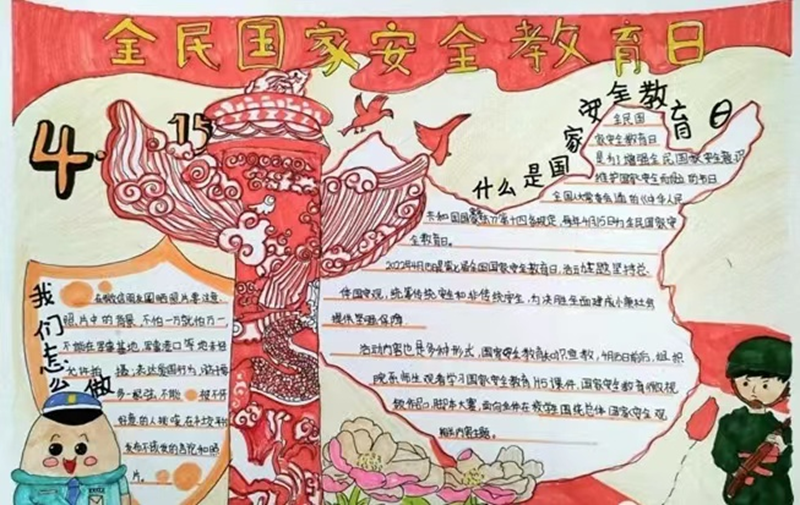 全民国家安全教育日
4.15
什么是国家安全教育日
全民国
家安全教育日
是为了增强全民国家安全意识
维护国家安全而设立的节日
全国人大常委会通过的《中华人民
共和国国家安全法》第十四条规定，每年4月15日为全民国家安
全教育日。
2022年4月15日是第七届全国国家安全教育日，活动主题是坚持总
体国家观，统筹传统安全和非传统安全，为决胜全面建成小康社会
提供坚强保障
活动内容也是多种形式，国家安全教育知识宣教，4月15日前后，组织
院系师生观看学习国家安全教育H5课件，国家安全教育微视
脚本大赛，面向全体在校学生围绕总体国家安全观
相关内容主题。
我们怎么做
在微信朋友圈晒照片要注意
照片中的背景，不怕一万就怕万一，
不能在军事基地，军事港口等地未经
允许拍摄，表达爱国行为，游
多一根弦，不能被不怀
好意的人挑唆，在
发布不该发的言论和照
片。